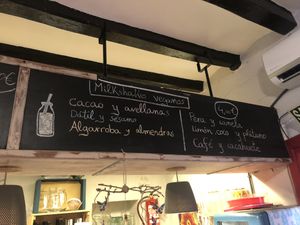 Milkshakes veganos
Cacao y avellanas
Dátil y sésamo
Algarroba y almendras
Pera y canela
Limón, coco y plátano
Café y cacahuete